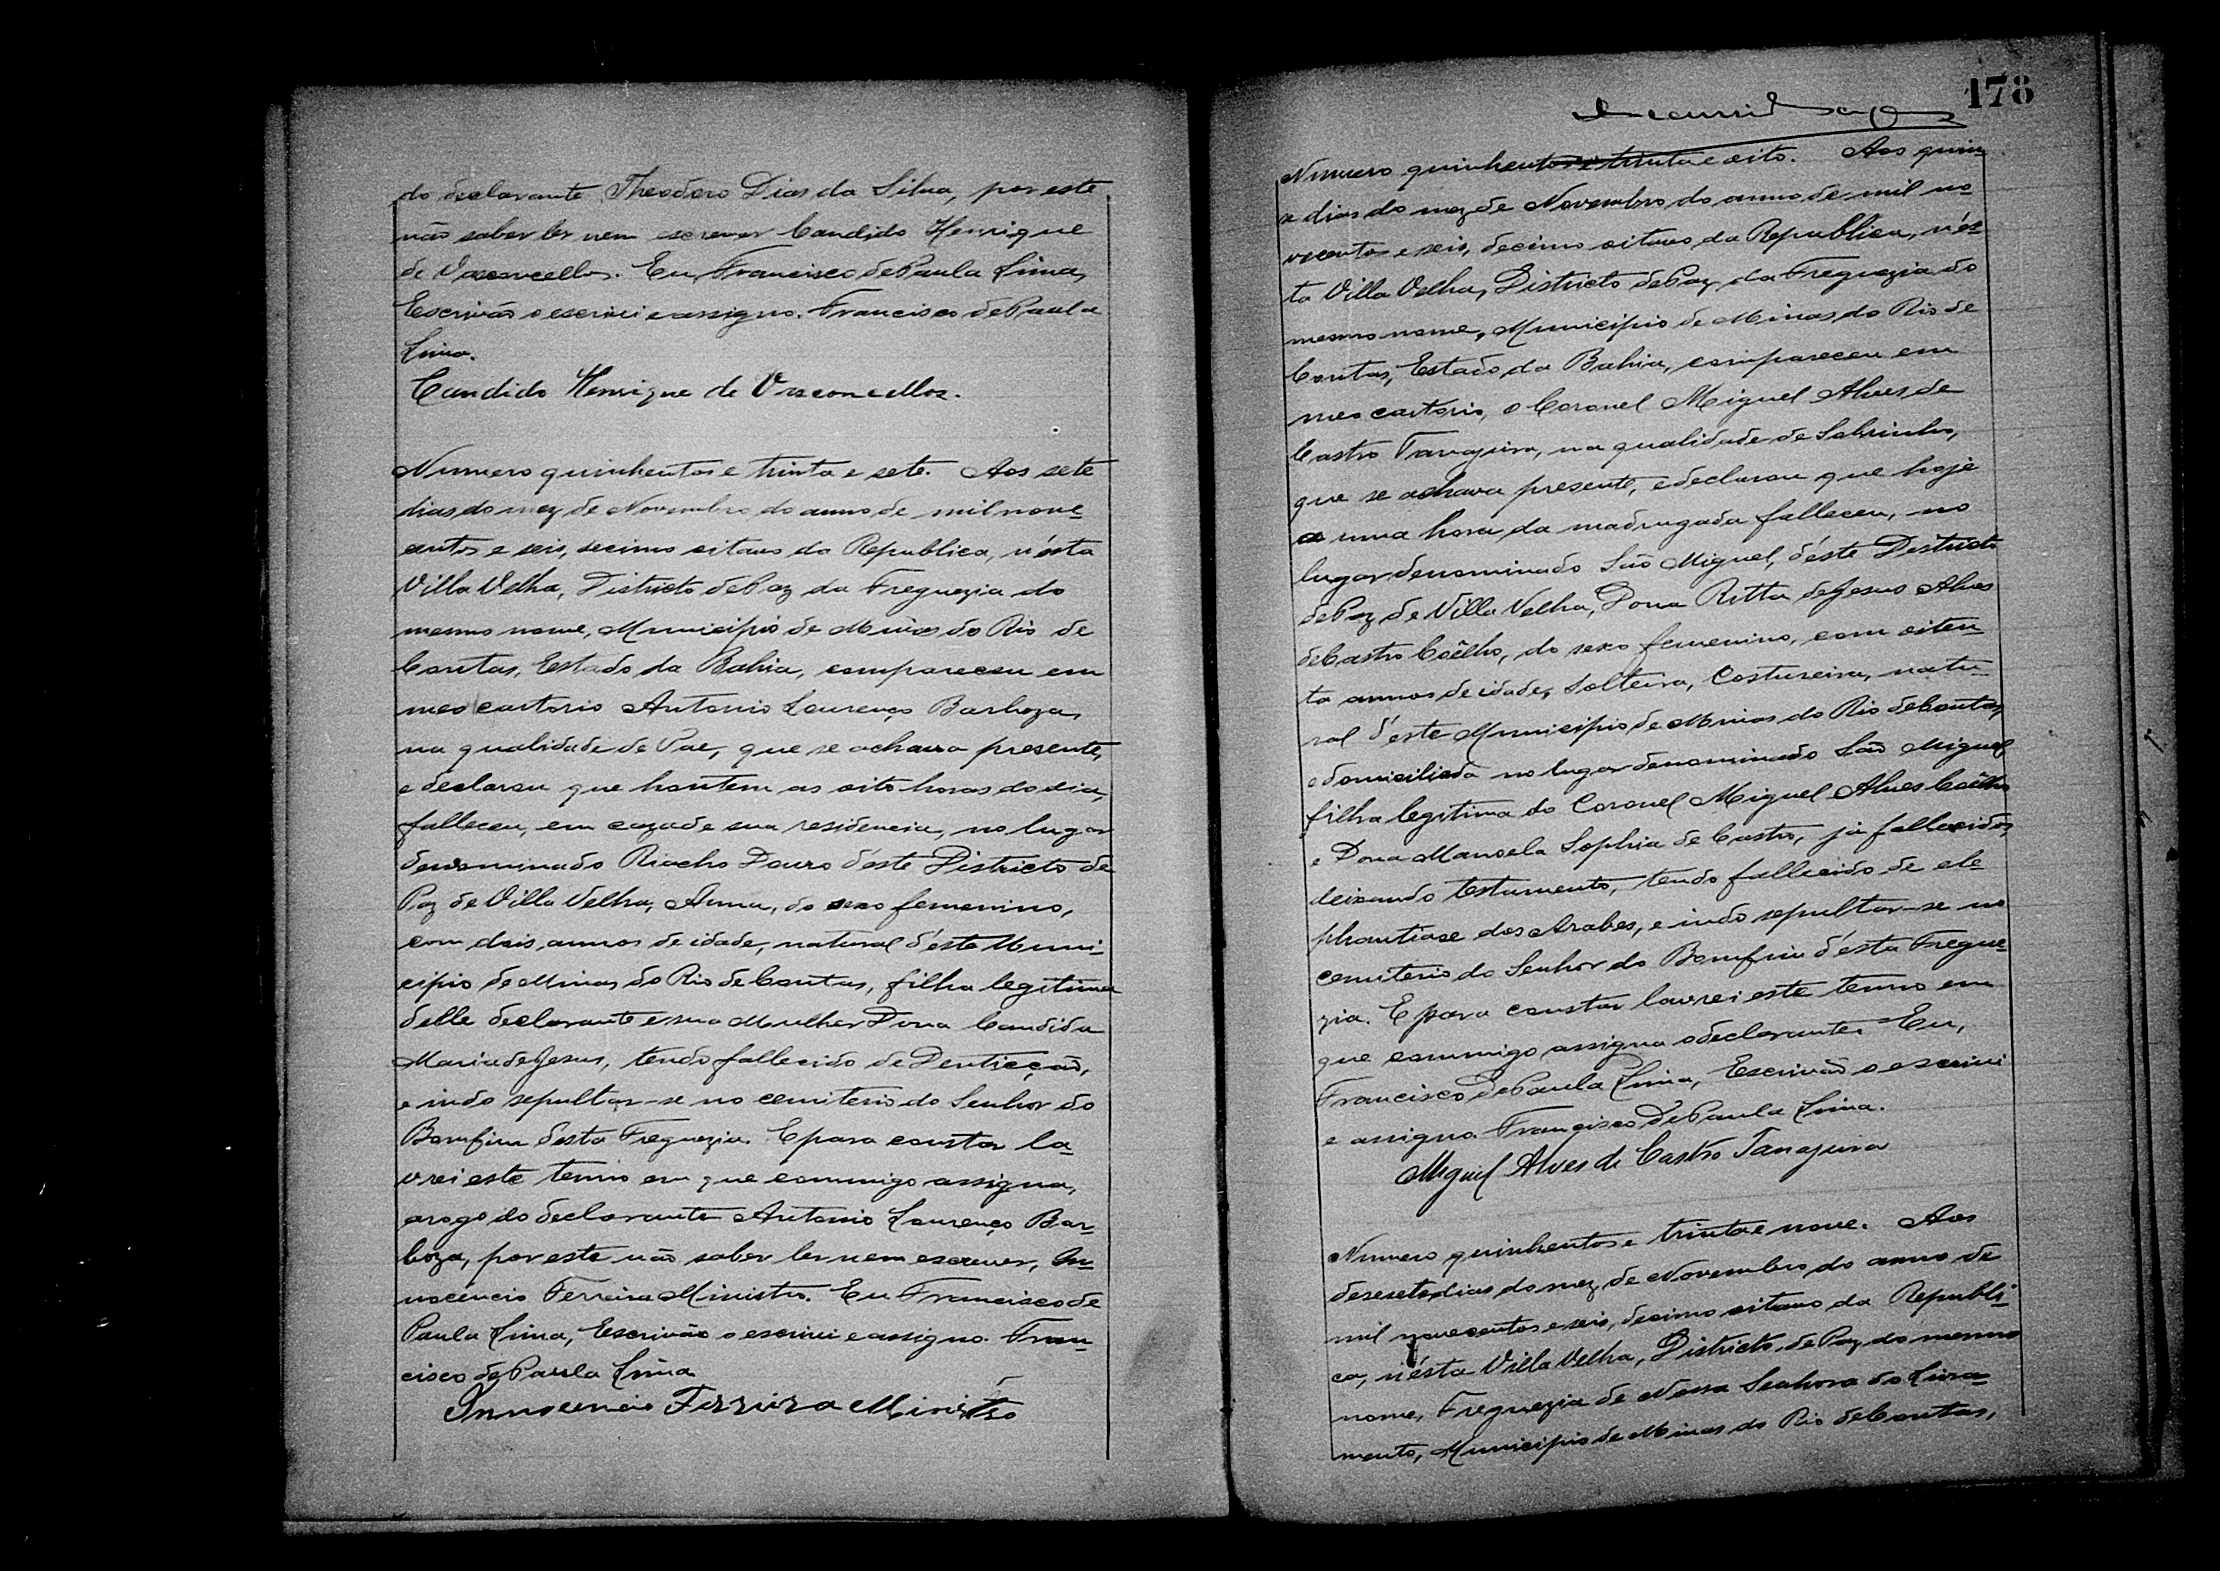 do declarante Theodoro Dias da Silva, por este
não saber ler nem escrever Candido Henrique
de Vasconcellos. Eu, Francisco de Paula Lima,
Escrivão o escrivi e assigno. Francisco de Paula
Lima.
Candido Henrique de Vasconcellos.
Numero quinhentos e trinta e sete. Aos sete
dias do mez de Novembro do anno de mil nove-
centos e seis, decimo oitavo da Republica, n'ésta
Villa Velha, Districto de Paz da Freguezia do
mesmo nome, Municipio de Minas do Rio de
Contas, Estado da Bahia, compareceu em
meo cartorio Antonio Lourenço Barboza,
na qualidade de Pae, que se achava presente,
e declarou que hontem as oito horas do dia,
falleceu, em caza de sua residencia, no lugar
denominado Riacho Douro d'éste Districto de
Paz de Villa Velha, Anna, do sexo femenino,
com dois annos de idade, natural d'éste Muni-
cipio de Minas do Rio de Contas, filha legitima
delle declarante e sua Mulher Dona Candida
Maria de Jesus, tendo fallecido de Denticção,
e indo sepultar-se no cemiterio do Senhor do
Bomfim desta Freguezia. E para constar la-
vrei este termo em que commigo assigna,
arogo do declarante Antonio Lourenço Bar-
boza, por este não saber ler nem escrever, In-
nocencio Ferreira Ministro. Eu Francisco de
Paula Lima, Escrivão o escrivi e assigno. Fran-
cisco de Paula Lima
Innocencio Ferreira Ministro
178
Numero quinhentos e trinta e oito. Aos quin-
ze dias do mez de Novembro do anno de mil no-
vecentos e seis, decimo oitavo da Republica, n'és-
ta Villa Velha, Districto de Paz da Freguezia do
mesmo nome, Municipio de Minas do Rio de
Contas, Estado da Bahia, compareceu em
meo cartorio, o Coronel Miguel Alves de
Castro Tanajura, na qualidade de Sobrinho,
que se achava presente, e declarou que hoje
a uma hora da madrugada falleceu, no
lugar denominado São Miguel, d'éste Districto
de Paz de Villa Velha, Dona Ritta de Jesus Alves
de Castro Coêlho, do sexo femenino, com oiten-
ta annos de idade, Solteira, Costureira, natu-
ral d'éste Municipio de Minas do Rio de Contas,
e domiciliada no lugar denominado São Miguel
filha legitima do Coronel Miguel Alves Coêlho
e Dona Manoela Sophia de Castro, já fallecidos,
deixando testamento, tendo fallecido de ele-
phantiase dos Arabes, e indo sepultar-se no
cemiterio do Senhor do Bomfim d'ésta Fregue-
zia. E para constar lavrei este termo em
que commigo assigna o declarante. Eu,
Francisco de Paula Lima, Escrivão o escrivi
e assigno. Francisco de Paula Lima.
Miguel Alves de Castro Tanajura
Numero quinhentos e trinta e nove. Aos
desesete dias do mez de Novembro do anno de
mil novecentos e seis, decimo oitavo da Republi-
ca, n'ésta Villa Velha, Districto de Paz do mesmo
nome, Freguezia de Nossa Senhora do Livra-
mento, Municipio de Minas do Rio de Contas,